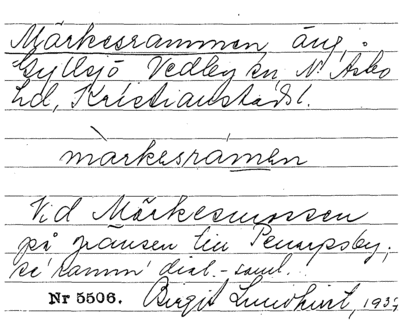 Märkesrammen äng,
Gyllsjö Vedby sn N. Åsbo
hd, Kristianstads l.
màrkesràmen
Vid Märkesmossen
på gränsen till Perarpsby;
se 'ramm' dial.-saml.
Nr 5506. Birgit Lundkvist, 1937